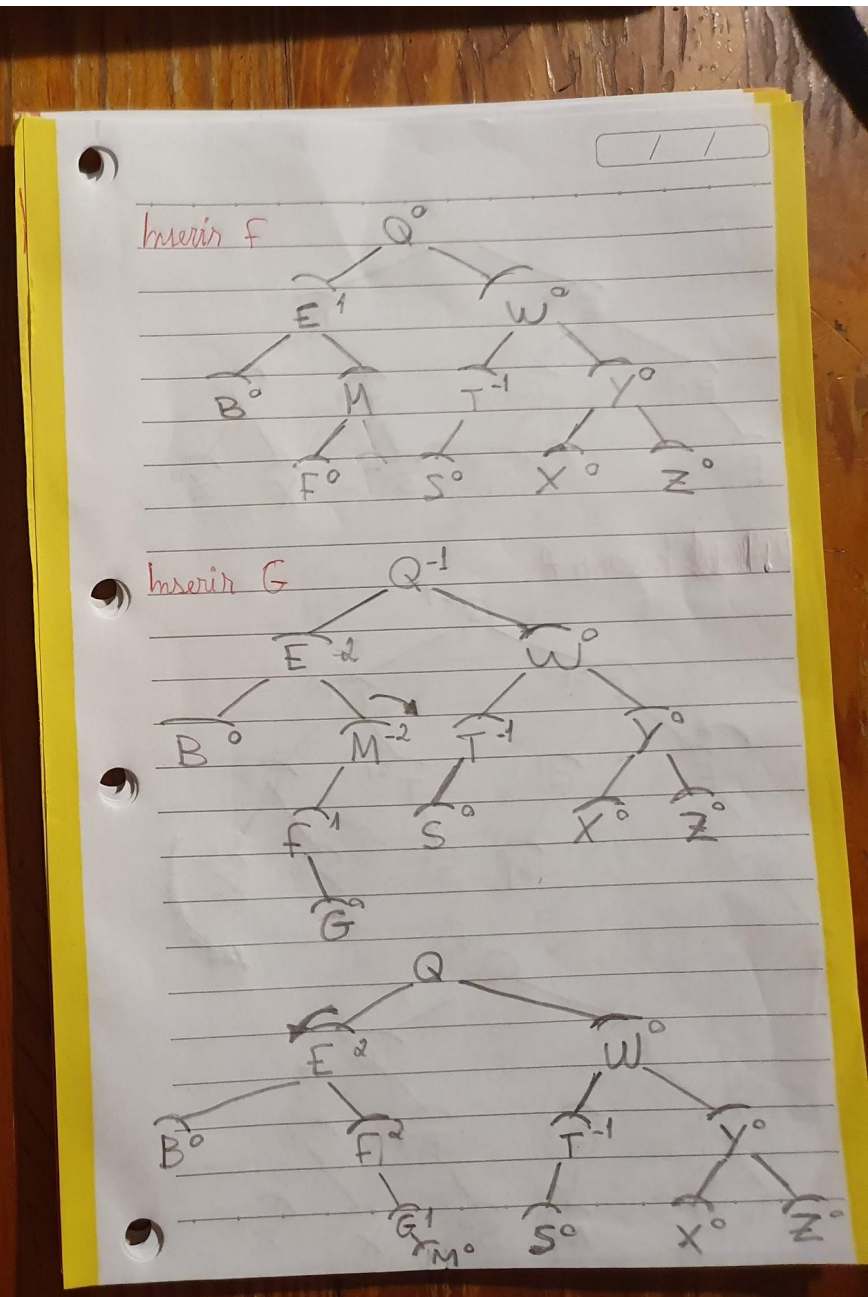 / /
Inserir F
Q⁰
E¹ W⁰
B⁰ M T⁻¹ Y⁰
F⁰ S⁰ X⁰ Z⁰
Inserir G
Q⁻¹
E⁻² W⁰
B⁰ M⁻² T⁻¹ Y⁰
F¹ S⁰ X⁰ Z⁰
G⁰
Q
E² W⁰
B⁰ F² T⁻¹ Y⁰
G¹ S⁰ X⁰ Z⁰
M⁰